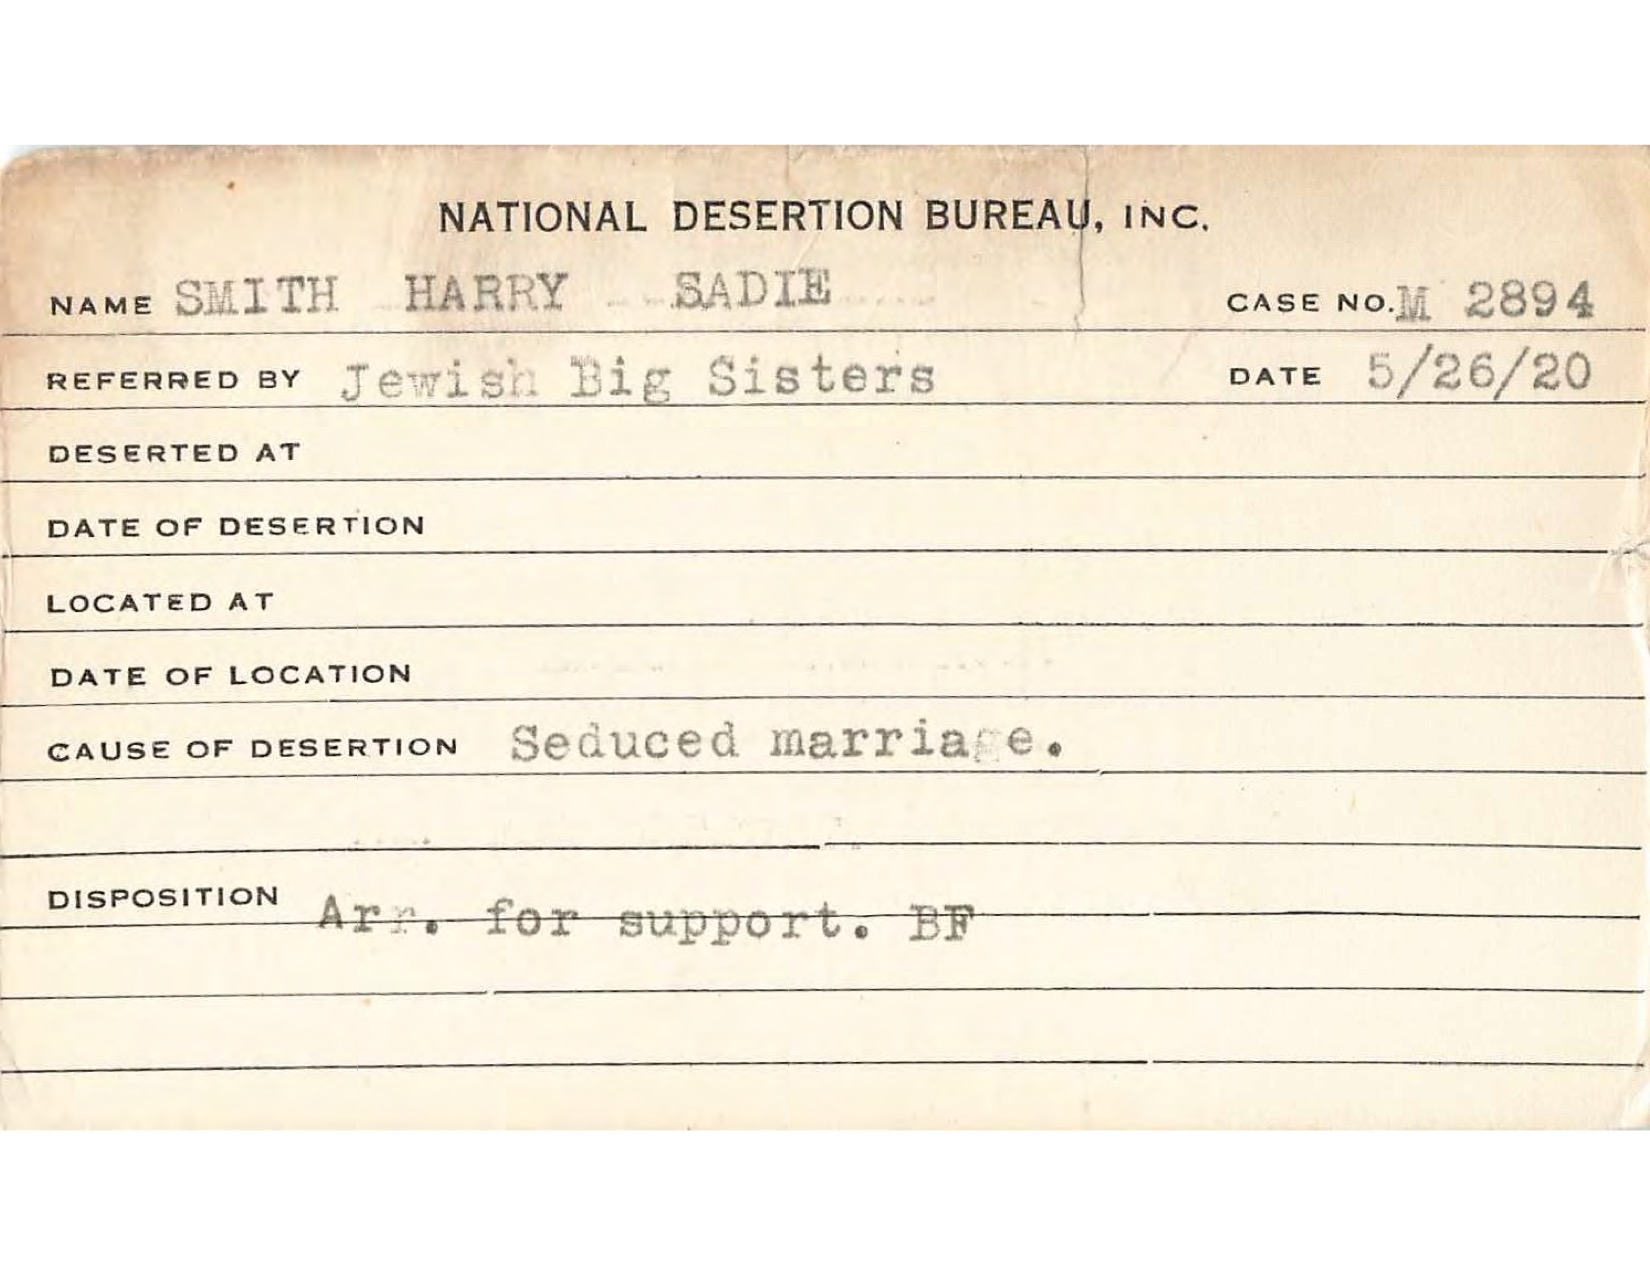 NATIONAL DESERTION BUREAU, INC.
NAME SMITH HARRY SADIE CASE NO. M 2894
REFERRED BY Jewish Big Sisters DATE 5/26/20
DESERTED AT
DATE OF DESERTION
LOCATED AT
DATE OF LOCATION
CAUSE OF DESERTION Seduced marriage.
DISPOSITION Arr. for support. BF